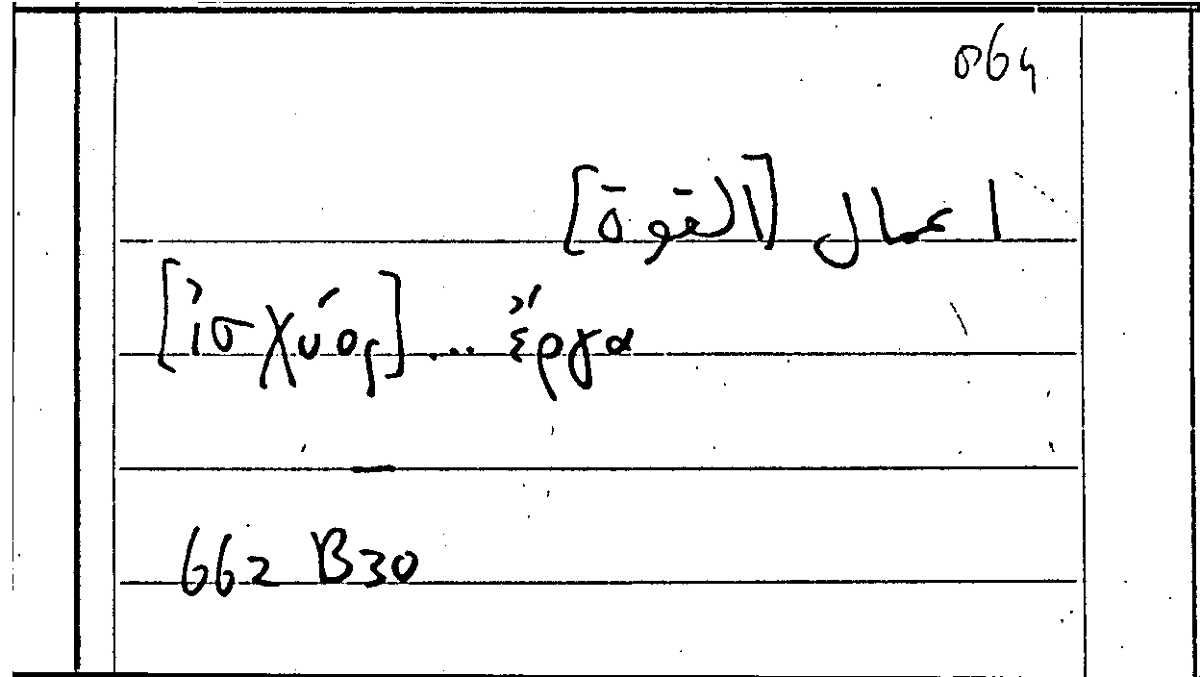 069
اعمال [القوة]
[ἰσχύος]... ἔργα
662 B30